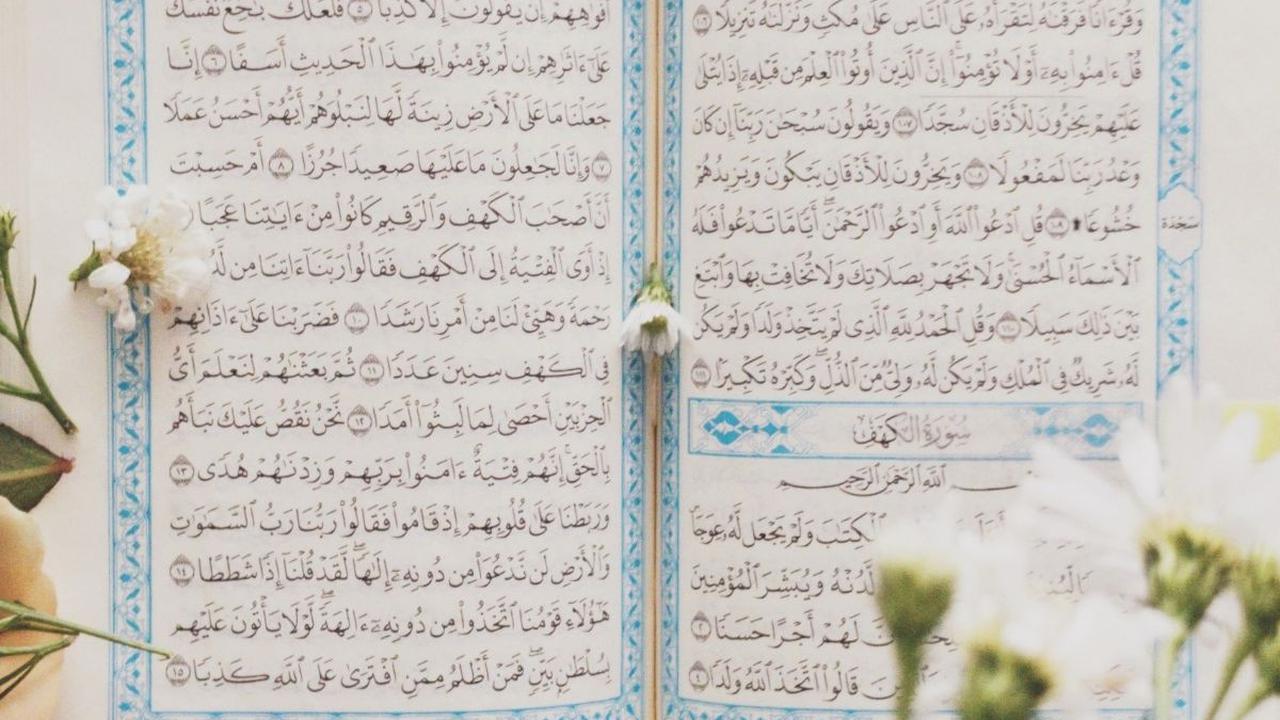 وَقُرْءَانًا فَرَقْنَٰهُ لِتَقْرَأَهُۥ عَلَى ٱلنَّاسِ عَلَىٰ مُكْثٍ وَنَزَّلْنَٰهُ تَنزِيلًا ١٠٦
قُلْ ءَامِنُوا۟ بِهِۦٓ أَوْ لَا تُؤْمِنُوٓا۟ ۚ إِنَّ ٱلَّذِينَ أُوتُوا۟ ٱلْعِلْمَ مِن قَبْلِهِۦٓ إِذَا يُتْلَىٰ
عَلَيْهِمْ يَخِرُّونَ لِلْأَذْقَانِ سُجَّدًا ١٠٧ وَيَقُولُونَ سُبْحَٰنَ رَبِّنَآ إِن كَانَ
وَعْدُ رَبِّنَا لَمَفْعُولًا ١٠٨ وَيَخِرُّونَ لِلْأَذْقَانِ يَبْكُونَ وَيَزِيدُهُمْ
خُشُوعًا ۩ ١٠٩ قُلِ ٱدْعُوا۟ ٱللَّهَ أَوِ ٱدْعُوا۟ ٱلرَّحْمَٰنَ ۖ أَيًّا مَّا تَدْعُوا۟ فَلَهُ
سَجْدَة
ٱلْأَسْمَآءُ ٱلْحُسْنَىٰ ۚ وَلَا تَجْهَرْ بِصَلَاتِكَ وَلَا تُخَافِتْ بِهَا وَٱبْتَغِ
بَيْنَ ذَٰلِكَ سَبِيلًا ١١٠ وَقُلِ ٱلْحَمْدُ لِلَّهِ ٱلَّذِى لَمْ يَتَّخِذْ وَلَدًا وَلَمْ يَكُن
لَّهُۥ شَرِيكٌ فِى ٱلْمُلْكِ وَلَمْ يَكُن لَّهُۥ وَلِىٌّ مِّنَ ٱلذُّلِّ ۖ وَكَبِّرْهُ تَكْبِيرًۢا ١١١
سُورَةُ الكَهْفِ
ٱللَّهِ ٱلرَّحْمَٰنِ ٱلرَّحِيمِ
ٱلْكِتَٰبَ وَلَمْ يَجْعَل لَّهُۥ عِوَجَا
لَّدُنْهُ وَيُبَشِّرَ ٱلْمُؤْمِنِينَ
لَهُمْ أَجْرًا حَسَنًا ٢
قَالُوا۟ ٱتَّخَذَ ٱللَّهُ وَلَدًا ٤
أَفْوَٰهِهِمْ إِن يَقُولُونَ إِلَّا كَذِبًا ٥ فَلَعَلَّكَ بَٰخِعٌ نَّفْسَكَ
عَلَىٰٓ ءَاثَٰرِهِمْ إِن لَّمْ يُؤْمِنُوا۟ بِهَٰذَا ٱلْحَدِيثِ أَسَفًا ٦ إِنَّا
جَعَلْنَا مَا عَلَى ٱلْأَرْضِ زِينَةً لَّهَا لِنَبْلُوَهُمْ أَيُّهُمْ أَحْسَنُ عَمَلًا
٧ وَإِنَّا لَجَٰعِلُونَ مَا عَلَيْهَا صَعِيدًا جُرُزًا ٨ أَمْ حَسِبْتَ
أَنَّ أَصْحَٰبَ ٱلْكَهْفِ وَٱلرَّقِيمِ كَانُوا۟ مِنْ ءَايَٰتِنَا عَجَبًا
إِذْ أَوَى ٱلْفِتْيَةُ إِلَى ٱلْكَهْفِ فَقَالُوا۟ رَبَّنَآ ءَاتِنَا مِن
رَحْمَةً وَهَيِّئْ لَنَا مِنْ أَمْرِنَا رَشَدًا ١٠ فَضَرَبْنَا عَلَىٰٓ ءَاذَانِهِمْ
فِى ٱلْكَهْفِ سِنِينَ عَدَدًا ١١ ثُمَّ بَعَثْنَٰهُمْ لِنَعْلَمَ أَىُّ
ٱلْحِزْبَيْنِ أَحْصَىٰ لِمَا لَبِثُوٓا۟ أَمَدًا ١٢ نَّحْنُ نَقُصُّ عَلَيْكَ نَبَأَهُم
بِٱلْحَقِّ ۚ إِنَّهُمْ فِتْيَةٌ ءَامَنُوا۟ بِرَبِّهِمْ وَزِدْنَٰهُمْ هُدًى ١٣
وَرَبَطْنَا عَلَىٰ قُلُوبِهِمْ إِذْ قَامُوا۟ فَقَالُوا۟ رَبُّنَا رَبُّ ٱلسَّمَٰوَٰتِ
وَٱلْأَرْضِ لَن نَّدْعُوَا۟ مِن دُونِهِۦٓ إِلَٰهًا ۖ لَّقَدْ قُلْنَآ إِذًا شَطَطًا ١٤
هَٰٓؤُلَآءِ قَوْمُنَا ٱتَّخَذُوا۟ مِن دُونِهِۦٓ ءَالِهَةً ۖ لَّوْلَا يَأْتُونَ عَلَيْهِم
بِسُلْطَٰنٍۭ بَيِّنٍ ۖ فَمَنْ أَظْلَمُ مِمَّنِ ٱفْتَرَىٰ عَلَى ٱللَّهِ كَذِبًا ١٥